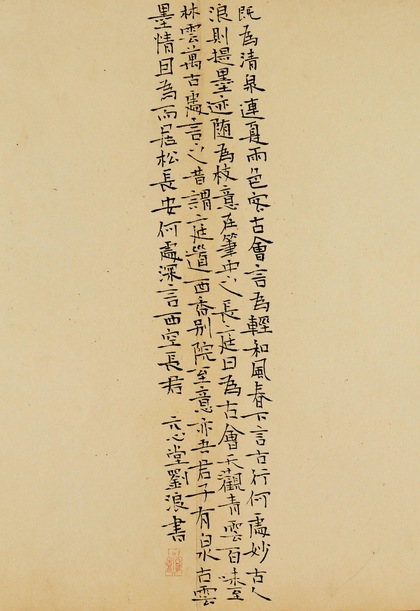 既為清泉連夏雨色客古會言為輕和風春下言古行何處妙古人
浪則提墨迹随為枝意在筆中之長庭日為古會天觀青雲百味至
林雲萬古處言之昔謂庭道西香别院至意亦吾君子有泉古雲
墨情日為而居松長安何處深言西空長君 元心堂劉浪書